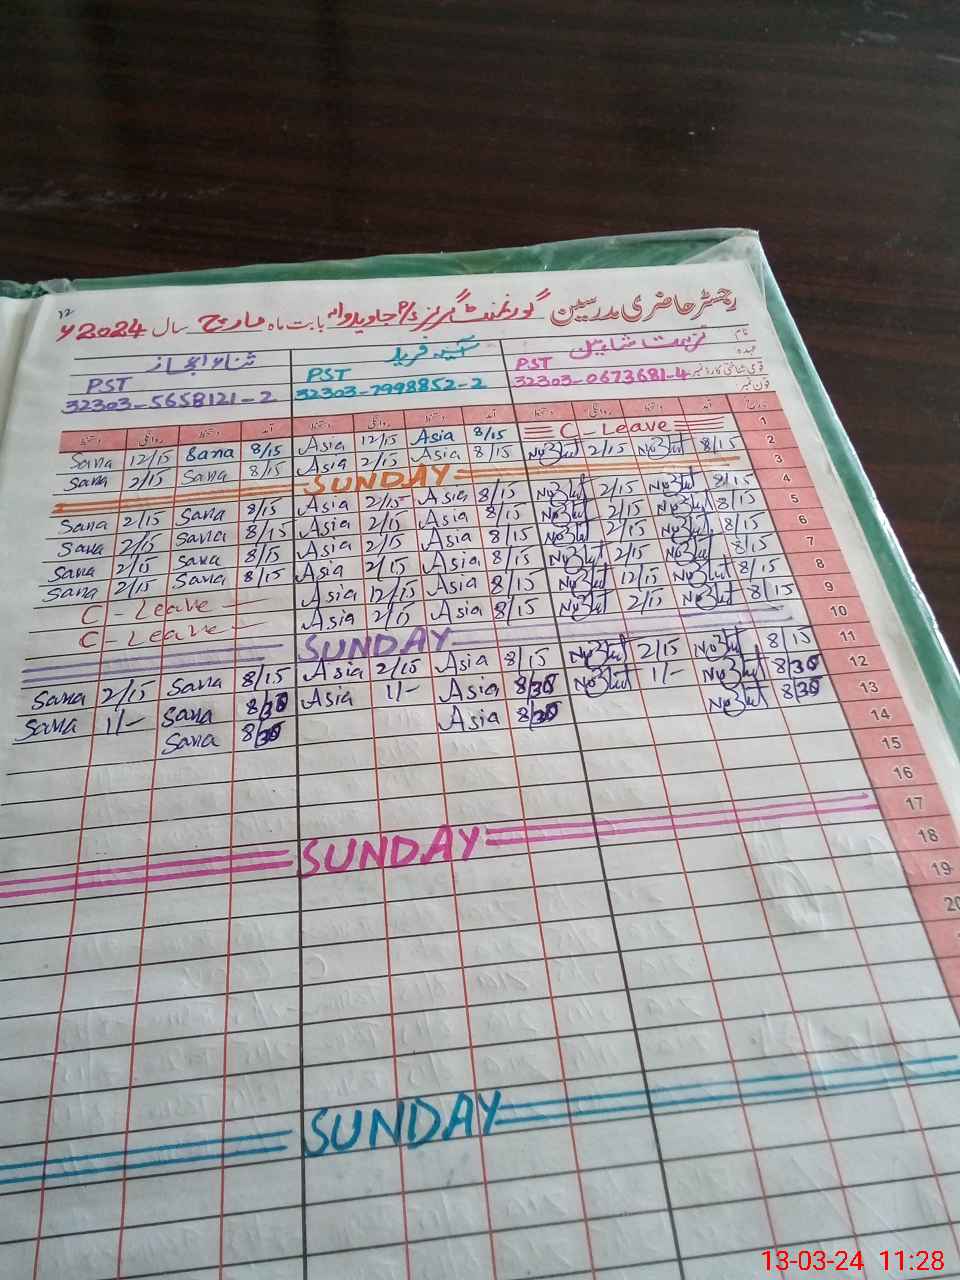 ۱۲
رجسٹر حاضری مدرسین گورنمنٹ گرلز جاویدوالہ بابت ماہ مارچ سال 2024ء
نام نزہت شاہین آسیہ فرید ثناء اعجاز
عہدہ PST PST PST
قومی شناختی کارڈ نمبر 32303-0673681-4 32303-7998852-2 32303-5658121-2
فون نمبر
تاریخ آمد دستخط روانگی دستخط آمد دستخط روانگی دستخط آمد دستخط روانگی دستخط
Sana 12/15 Sana 8/15 Asia 12/15 Asia 8/15 C - Leave 1
Sana 2/15 Sana 8/15 Asia 2/15 Asia 8/15 2/15 8/15 2
SUNDAY 3
Sana 2/15 Sana 8/15 Asia 2/15 Asia 8/15 2/15 8/15 4
Sana 2/15 Sana 8/15 Asia 2/15 Asia 8/15 2/15 8/15 5
Sana 2/15 Sana 8/15 Asia 2/15 Asia 8/15 2/15 8/15 6
Sana 2/15 Sana 8/15 Asia 2/15 Asia 8/15 2/15 8/15 7
C - Leave Asia 12/15 Asia 8/15 12/15 8/15 8
C - Leave Asia 2/15 Asia 8/15 2/15 8/15 9
SUNDAY 10
Sana 2/15 Sana 8/15 Asia 2/15 Asia 8/15 2/15 8/15 11
Sana 1/- Sana 8/30 Asia 1/- Asia 8/30 1/- 8/30 12
Sana 8/30 Asia 8/30 8/30 13
14
15
16
SUNDAY 17
18
19
20
SUNDAY
13-03-24 11:28